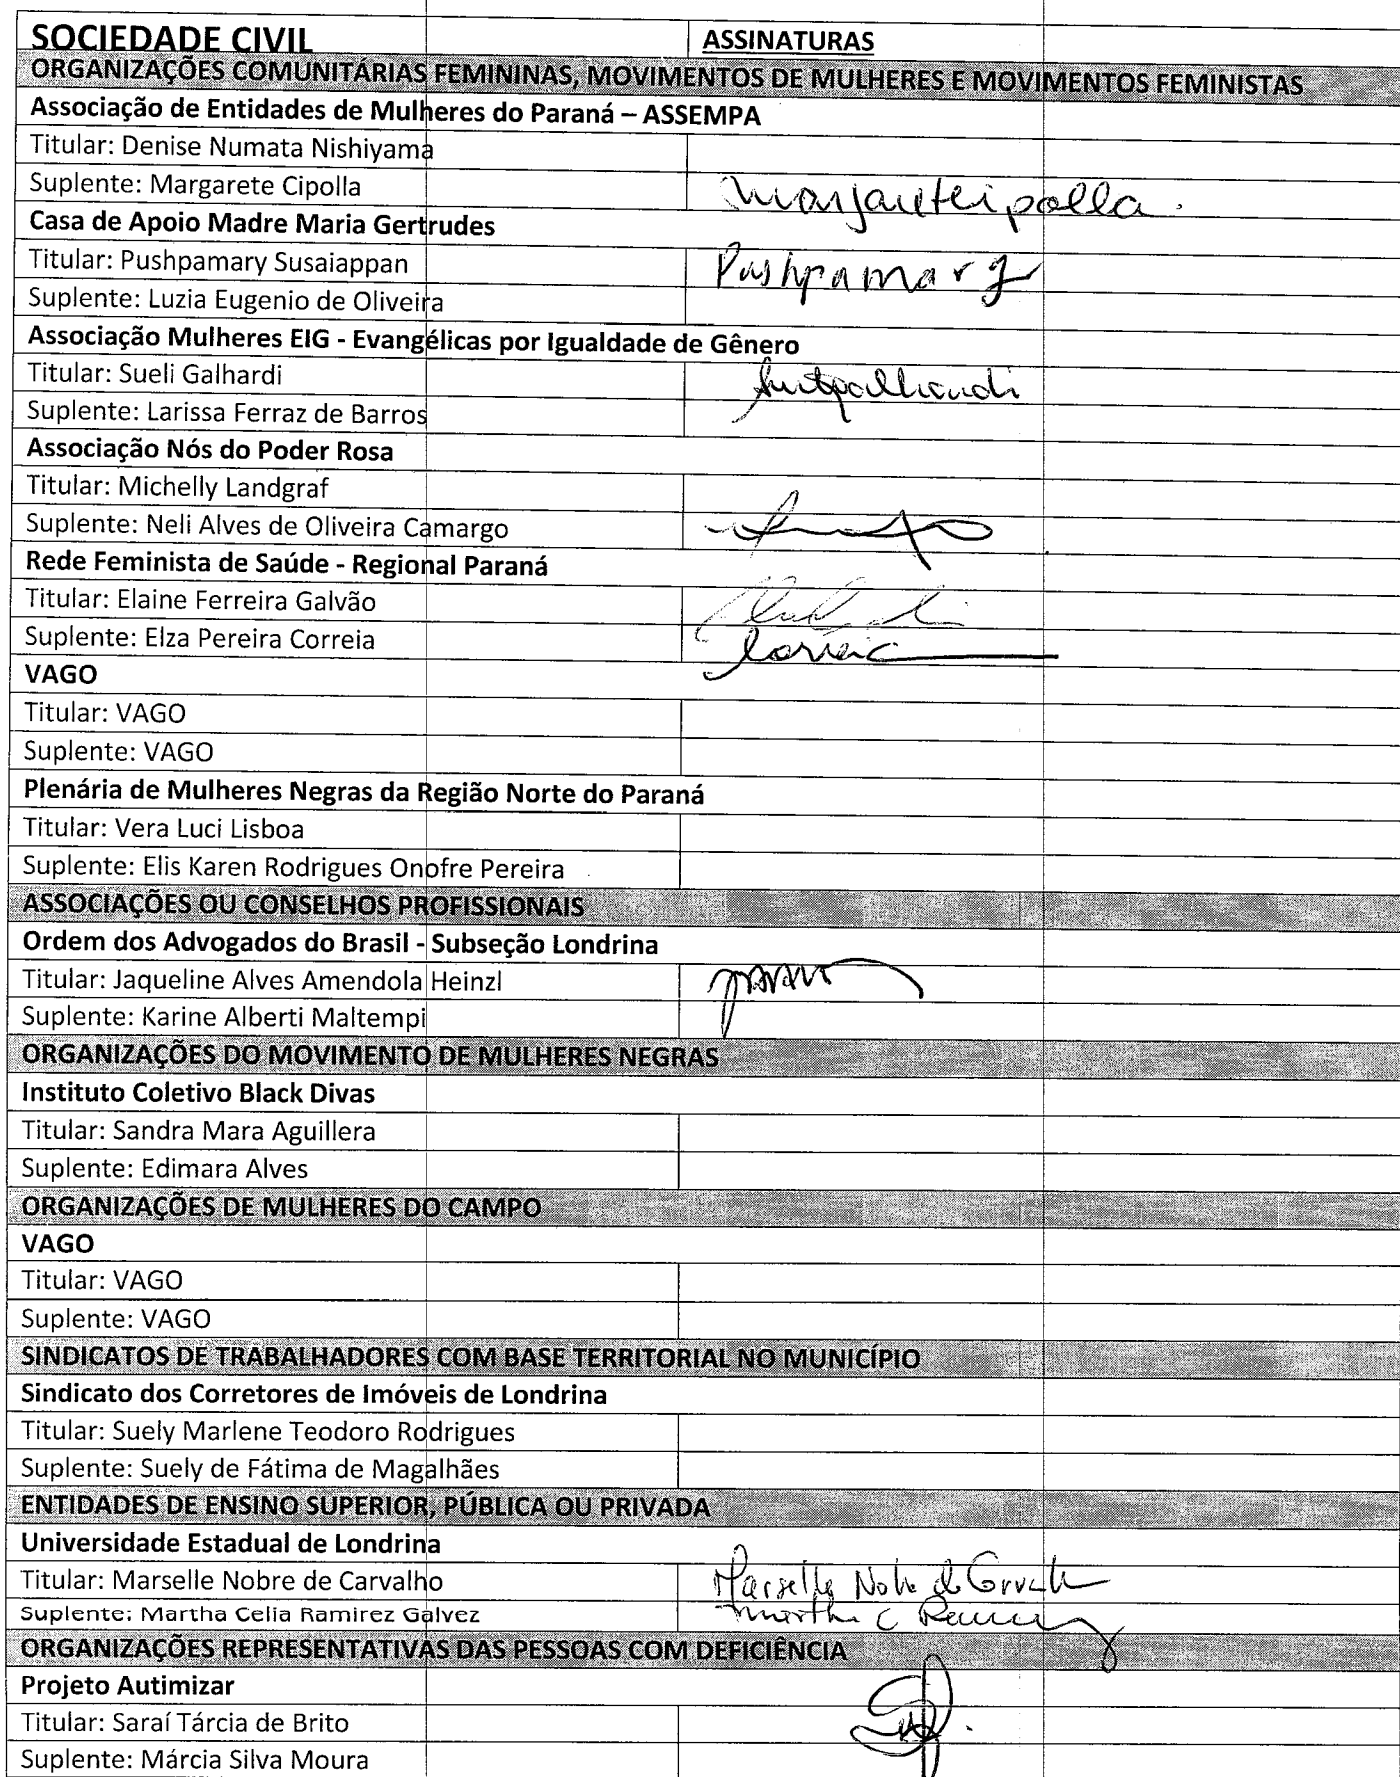 SOCIEDADE CIVIL ASSINATURAS
ORGANIZAÇÕES COMUNITÁRIAS FEMININAS, MOVIMENTOS DE MULHERES E MOVIMENTOS FEMINISTAS
Associação de Entidades de Mulheres do Paraná – ASSEMPA
Titular: Denise Numata Nishiyama
Suplente: Margarete Cipolla
Casa de Apoio Madre Maria Gertrudes
Titular: Pushpamary Susaiappan Pushpamary
Suplente: Luzia Eugenio de Oliveira
Associação Mulheres EIG - Evangélicas por Igualdade de Gênero
Titular: Sueli Galhardi
Suplente: Larissa Ferraz de Barros
Associação Nós do Poder Rosa
Titular: Michelly Landgraf
Suplente: Neli Alves de Oliveira Camargo
Rede Feminista de Saúde - Regional Paraná
Titular: Elaine Ferreira Galvão
Suplente: Elza Pereira Correia Correia
VAGO
Titular: VAGO
Suplente: VAGO
Plenária de Mulheres Negras da Região Norte do Paraná
Titular: Vera Luci Lisboa
Suplente: Elis Karen Rodrigues Onofre Pereira
ASSOCIAÇÕES OU CONSELHOS PROFISSIONAIS
Ordem dos Advogados do Brasil - Subseção Londrina
Titular: Jaqueline Alves Amendola Heinzl
Suplente: Karine Alberti Maltempi
ORGANIZAÇÕES DO MOVIMENTO DE MULHERES NEGRAS
Instituto Coletivo Black Divas
Titular: Sandra Mara Aguillera
Suplente: Edimara Alves
ORGANIZAÇÕES DE MULHERES DO CAMPO
VAGO
Titular: VAGO
Suplente: VAGO
SINDICATOS DE TRABALHADORES COM BASE TERRITORIAL NO MUNICÍPIO
Sindicato dos Corretores de Imóveis de Londrina
Titular: Suely Marlene Teodoro Rodrigues
Suplente: Suely de Fátima de Magalhães
ENTIDADES DE ENSINO SUPERIOR, PÚBLICA OU PRIVADA
Universidade Estadual de Londrina
Titular: Marselle Nobre de Carvalho Marselle Nobre de Carvalho
Suplente: Martha Celia Ramirez Galvez Martha C Ramirez
ORGANIZAÇÕES REPRESENTATIVAS DAS PESSOAS COM DEFICIÊNCIA
Projeto Autimizar
Titular: Saraí Tárcia de Brito
Suplente: Márcia Silva Moura